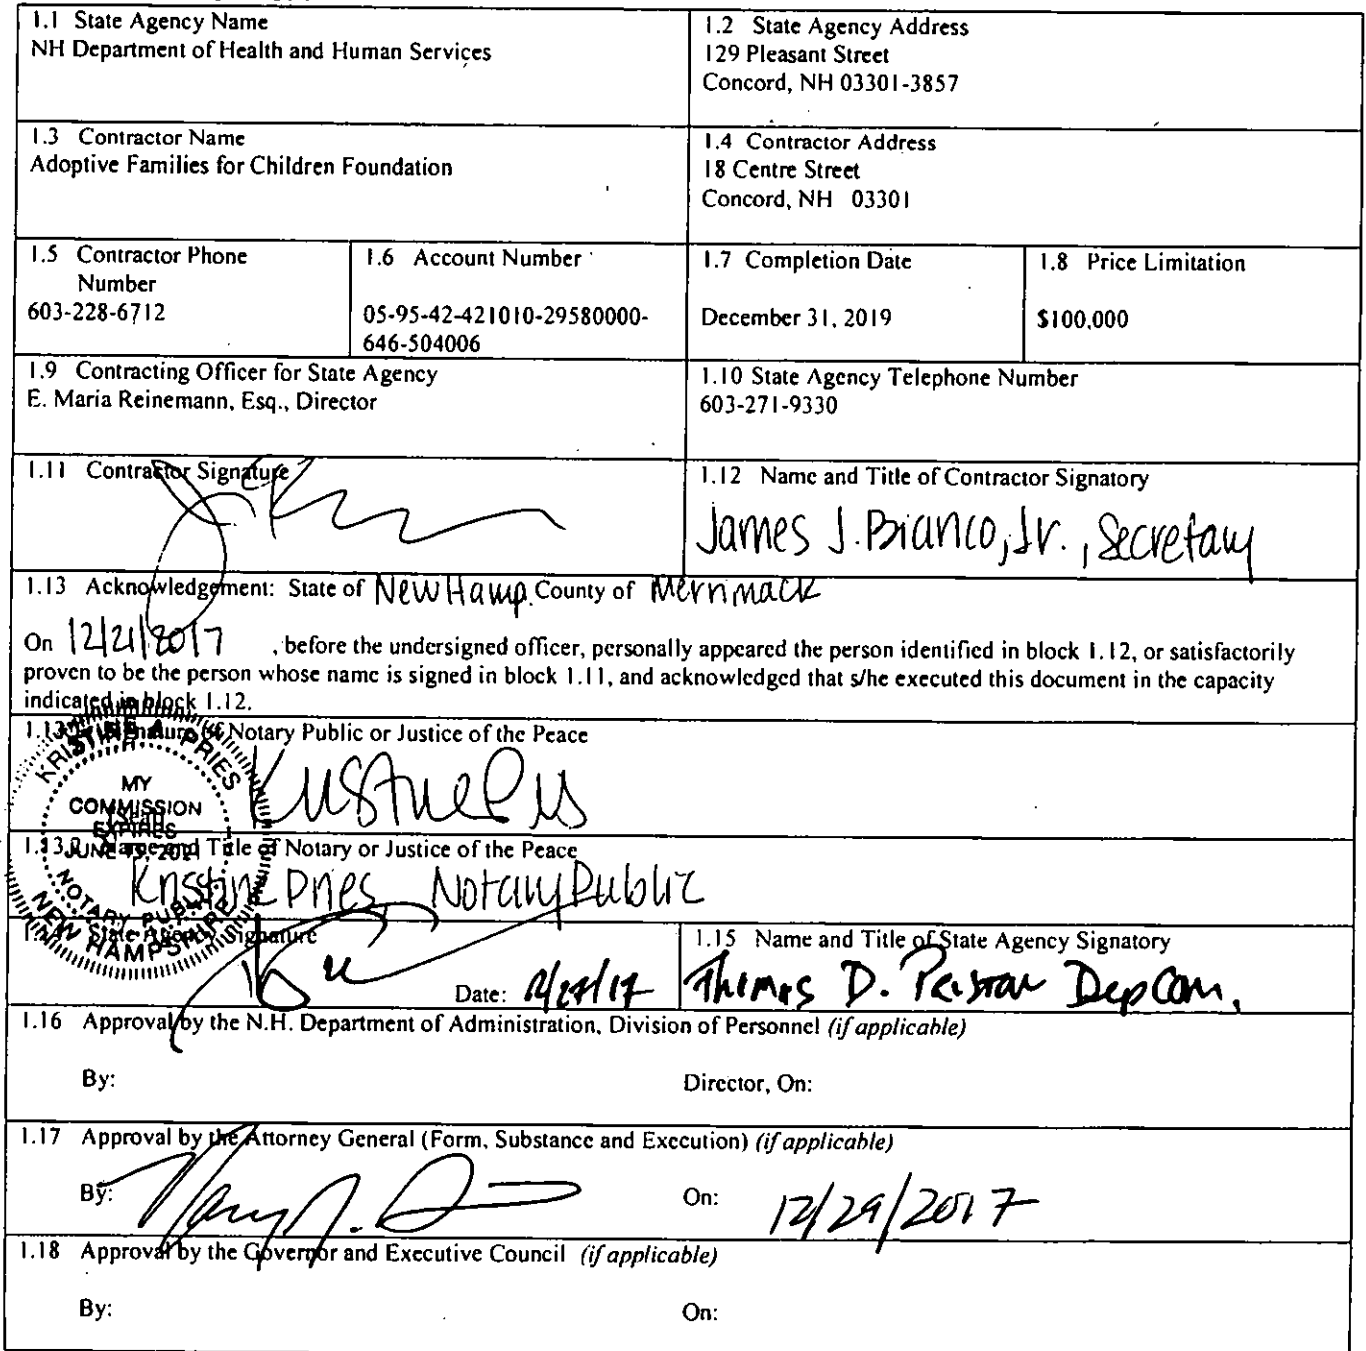 1.1 State Agency Name
NH Department of Health and Human Services
1.2 State Agency Address
129 Pleasant Street
Concord, NH 03301-3857
1.3 Contractor Name
Adoptive Families for Children Foundation
1.4 Contractor Address
18 Centre Street
Concord, NH 03301
1.5 Contractor Phone
Number
603-228-6712
1.6 Account Number
05-95-42-421010-29580000-
646-504006
1.7 Completion Date
December 31, 2019
1.8 Price Limitation
$100,000
1.9 Contracting Officer for State Agency
E. Maria Reinemann, Esq., Director
1.10 State Agency Telephone Number
603-271-9330
1.11 Contractor Signature
1.12 Name and Title of Contractor Signatory
James J. Bianco, Jr., Secretary
1.13 Acknowledgement: State of New Hamp. County of Merrimack
On 12/21/2017 , before the undersigned officer, personally appeared the person identified in block 1.12, or satisfactorily
proven to be the person whose name is signed in block 1.11, and acknowledged that s/he executed this document in the capacity
indicated in block 1.12.
Signature of Notary Public or Justice of the Peace
KRISTINE A. PRIES
MY
COMMISSION
EXPIRES
JUNE 2021
NOTARY PUBLIC
NEW HAMPSHIRE
[Seal]
Name and Title of Notary or Justice of the Peace
Kristine Pries, Notary Public
State Agency Signature
Date:
1.15 Name and Title of State Agency Signatory
Thomas D. Dep Com.
1.16 Approval by the N.H. Department of Administration, Division of Personnel (if applicable)
By:
Director, On:
1.17 Approval by the Attorney General (Form, Substance and Execution) (if applicable)
By:
On: 12/29/2017
1.18 Approval by the Governor and Executive Council (if applicable)
By:
On: